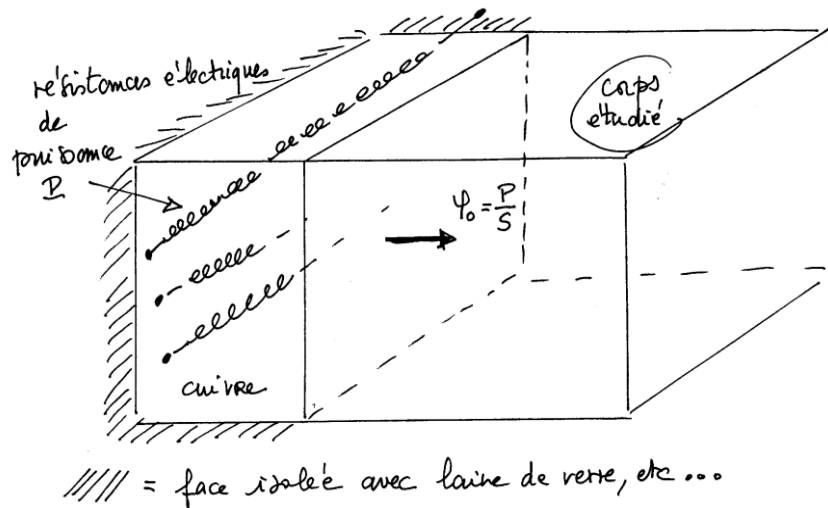 résistances électriques
de
puissance
P
corps
étudié
φ₀ = P/S
cuivre
//// = face isolée avec laine de verre, etc...